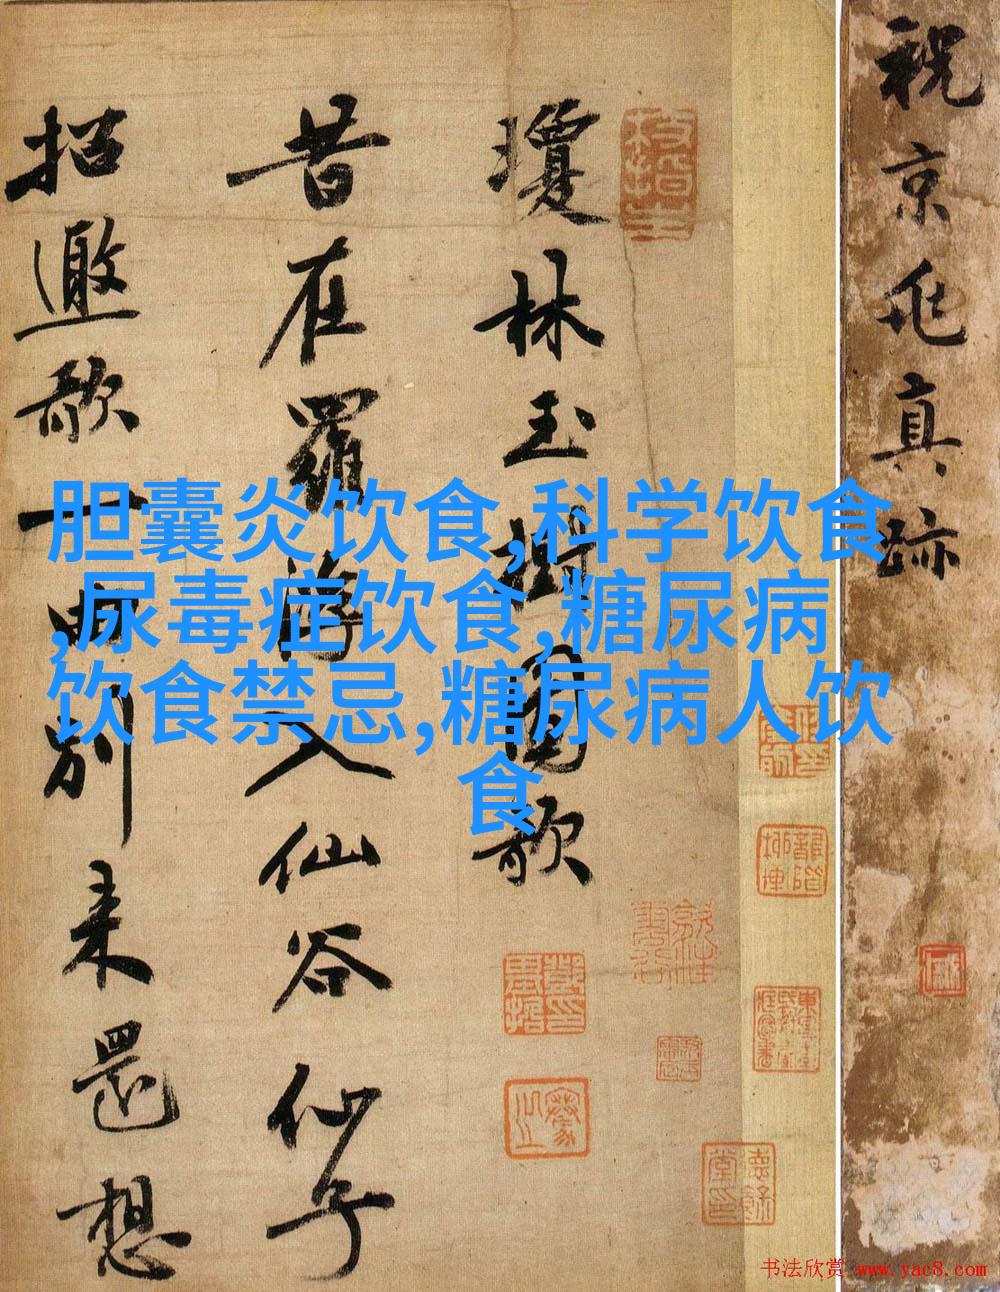 祝京兆真跡
瓊林玉樹圖歌
昔在羅浮入仙谷仙子
招邀歌一曲別来還想
胆囊炎饮食,科学饮食
,尿毒症饮食,糖尿病
饮食禁忌,糖尿病人饮
食
书法欣赏 www.yac8.com